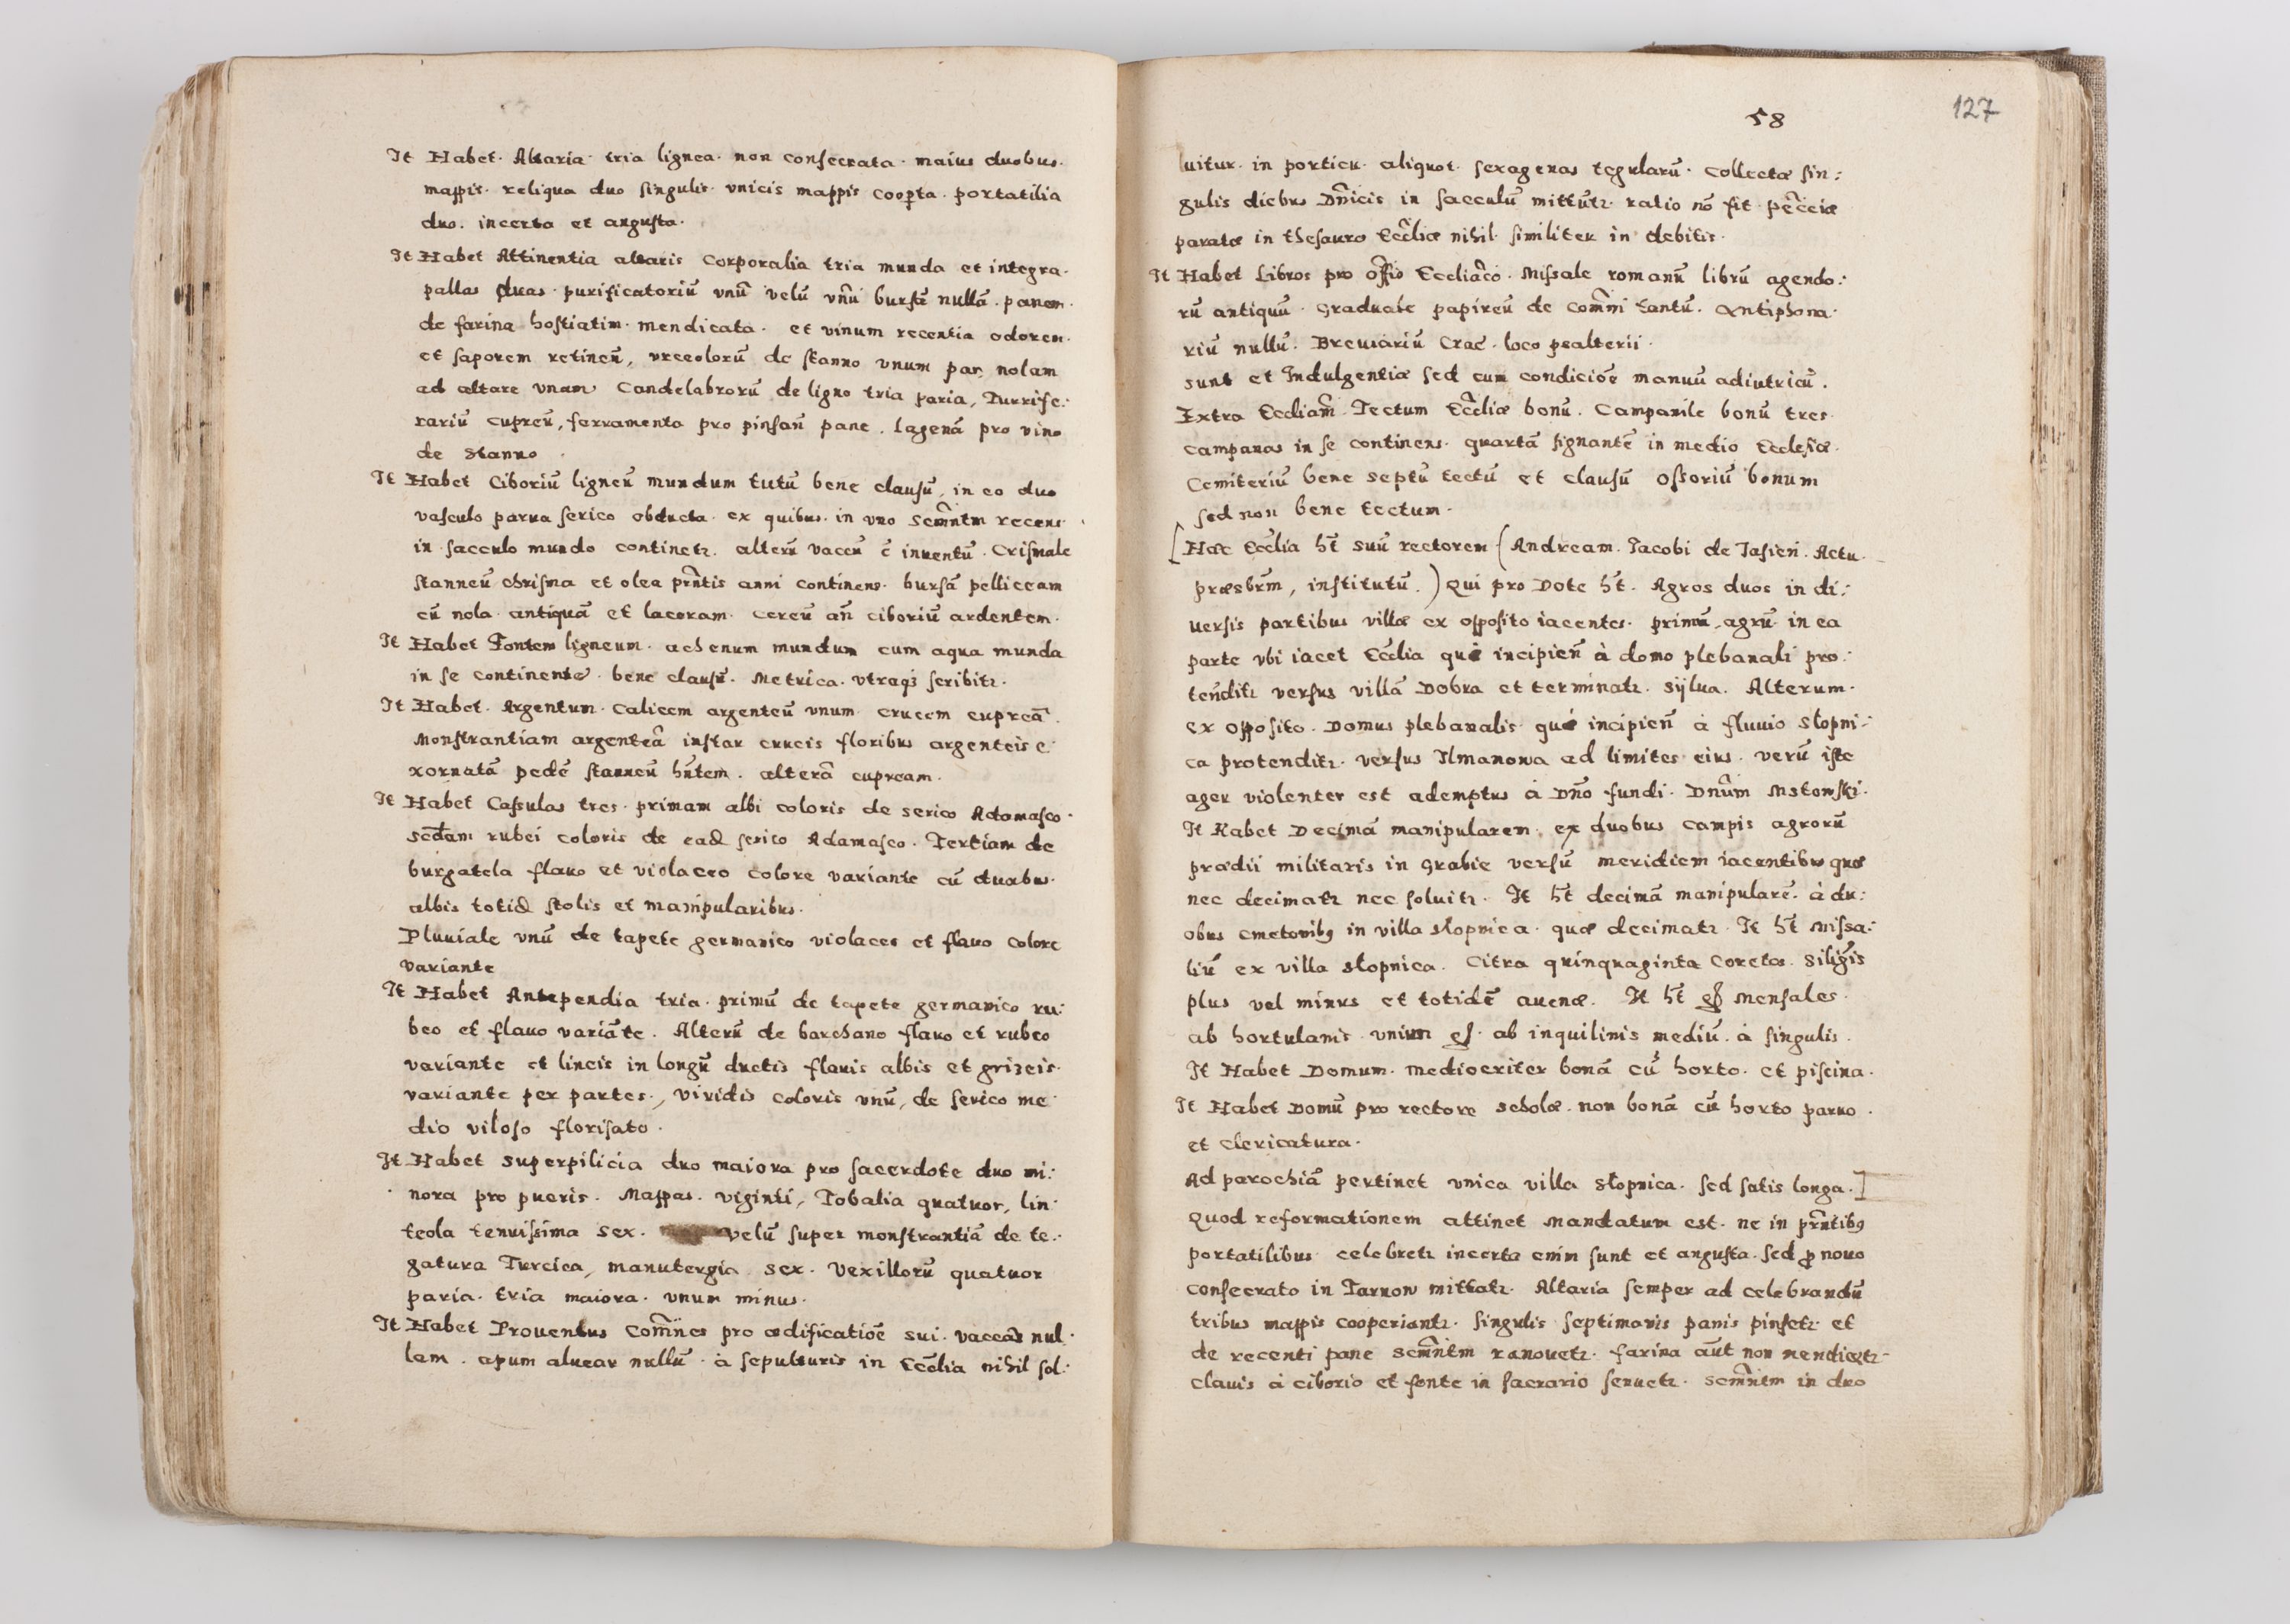 It Habet. Altaria tria lignea. non consecrata. maius duobus.
mappis. reliqua duo singulis. vnicis mappis coop̄ta. portatilia
duo. incerta et angusta.
It Habet Attinentia altaris Corporalia tria munda et integra.
pallas duas. purificatoriū vnū velū vnū bursā nullā. panem.
de farina hostiatim. mendicata. et vinum recentia odorem.
et saporem retineñ, vrceolorū de stanno vnum par, nolam
ad altare vnam Candelabrorū de ligno tria paria, Turrife:
rariū cupreū, ferramenta pro pinsañ pane. lagenā pro vino
de stanno.
It Habet Ciboriū ligneū mundum tutū bene clausū, in eo duo
vascula parua serico obducta. ex quibus. in vno Scm̄ntm recens
in sacculo mundo continetr. alterū vacuū ē inuentū. Crismale
stanneū chrisma et olea prn̄tis anni continens. bursā pelliceam
cū nola. antiquā et laceram. cereū añ ciboriū ardentem.
It Habet Fontem ligneum. ahenum mundum cum aqua munda
in se continente. bene clausū. Metrica. vtraqȝ scribitr.
It Habet. Argentum. Calicem argenteū vnum. crucem cupreā.
Monstrantiam argenteā instar crucis floribus argenteis e
xornatā pedē stanneū hn̄tem. alterā cupream.
It Habet Cassulas tres. primam albi coloris de serico Adamasco.
Scd̄am rubei coloris de ead serico Adamasco. Tertiam de
burgatela flauo et violaceo colore variante cū duabus.
albis totid stolis et manipularibus.
Pluuiale vnū de tapete germanico violaceo et flauo colore
variante
It Habet Antependia tria. primū de tapete germanico ru:
beo et flauo variāte. Alterū de barchano flauo et rubeo
variante et lineis in longū ductis flauis albis et griseis.
variante per partes, viridis coloris vnū, de serico me
dio viloso florisato.
It Habet superpilicia duo maiora pro sacerdote duo mi:
nora pro pueris. Mappas. viginti, Tobalia quatuor, lin
teola tenuissima sex. velū super monstrantiā de te:
gatura Turcica, manutergia sex. Vexillorū quatuor
paria. tria maiora. vnum minus.
It Habet Prouentus Com̄nes pro ædificatiōe sui. vaccas nul:
lam. apum aluear nullū. à sepulturis in Eccl̄ia nihil sol:
58
127
uitur. in porticu. aliquot. sexagenas tegularū. Collectæ sin:
gulis diebus Dn̄icis in sacculū mittūtr. ratio nō fit pec̄ciæ
paratæ in thesauro Eccl̄iæ nihil. similiter in debitis.
It Habet Libros pro off̄o Eccliac̄o. Missale romanū librū agendo:
rū antiquū. Graduale papireū de Com̄ni tantū. Antiphona:
riū nullū. Breuiariū Crac. loco psalterii.
sunt et Indulgentiæ sed cum condiciōe manuū adiutricū.
Extra Eccliam̄. Tectum Eccl̄iæ bonū. Campanile bonū tres
campanas in se continens. quartā signantē in medio Ecclesiæ.
Cemiteriū bene septū tectū et clausū Ossoriū bonum
sed non bene tectum.
[Hæc Eccl̄ia ht̄ suū rectorem (Andream. Jacobi de Jasień. Actu.
præsbrm̄, institutū.) Qui pro Dote ht̄. Agros duos in di:
uersis partibus villæ ex opposito iacentes. primū, agrū in ea
parte vbi iacet Eccl̄ia qui incipień à domo plebanali pro:
tenditr versus villā Dobra et terminatr. sÿlua. Alterum.
ex opposito. Domus plebanalis qui incipień à fluuio Slopni:
ca protenditr. versus Ilmanowa ad limites eius. verū iste
ager violenter est ademptus à Dn̄o fundi. Dnūm Mstowski.
It Habet Decimā manipularem. ex duobus campis agrorū
prædii militaris in Grabie versū meridiem iacentibus quæ
nec decimatr nec soluitr. It ht̄ decimā manipularē. à du:
obus cmetonibȝ in villa slopnica. quæ decimatr. It ht̄ Missa:
liū ex villa slopnica. Citra quinquaginta Coretos. siligīs
plus vel minus et totidē auenæ. It ht̄ gſ mensales
ab hortulanis. vnum gſ. ab inquilinis mediū. à singulis.
It Habet Domum. mediocriter bonā cū horto. et piscina.
It Habet Domū pro rectore scholæ. non bonā cū horto paruo.
et clericatura.
Ad parochiā pertinet vnica villa slopnica. sed satis longa.]
Quod reformationem attinet Mandatum est. ne in prn̄tibȝ
portatilibus celebretr incerta enim sunt et angusta. sed ꝓ nouo
consecrato in Tarnow mittatr. Altaria semper ad celebrandū
tribus mappis cooperiantr. singulis septimanis panis pinsetr et
de recenti pane Scm̄ntm renouetr. farina aūt non mendicetr.
Clauis à ciborio et fonte in sacrario seruetr. Scm̄ntm in duo